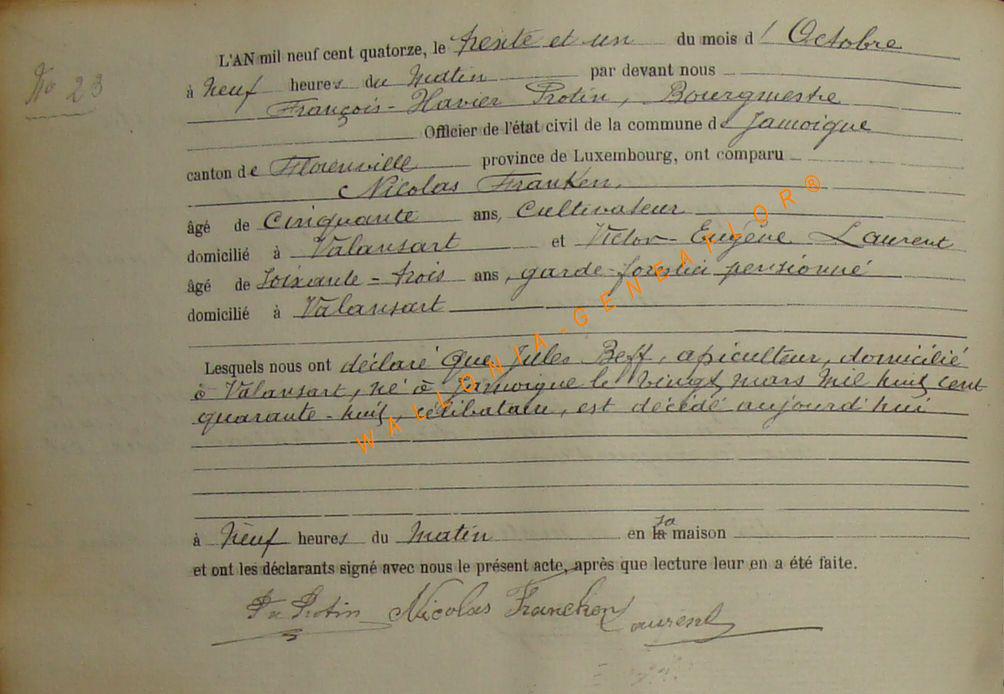 No 23
L'AN mil neuf cent quatorze, le trente et un du mois d' Octobre
à Neuf heures du Matin par devant nous
François-Xavier Protin, Bourgmestre
Officier de l'état civil de la commune de Jamoigne
canton de Florenville province de Luxembourg, ont comparu
Nicolas Franken,
âgé de Cinquante ans, Cultivateur
domicilié à Valansart et Victor-Eugène Laurent
âgé de Soixante-trois ans, garde-forestier pensionné
domicilié à Valansart
Lesquels nous ont déclaré que Jules Beff, apiculteur, domicilié
à Valansart, né à Jamoigne le vingt mars mil huit cent
quarante-huit, célibataire, est décédé aujourd'hui
à Neuf heures du Matin en la sa maison
et ont les déclarants signé avec nous le présent acte, après que lecture leur en a été faite.
Protin Nicolas Francken Laurent
WALLONIA-GENEAFLOR®